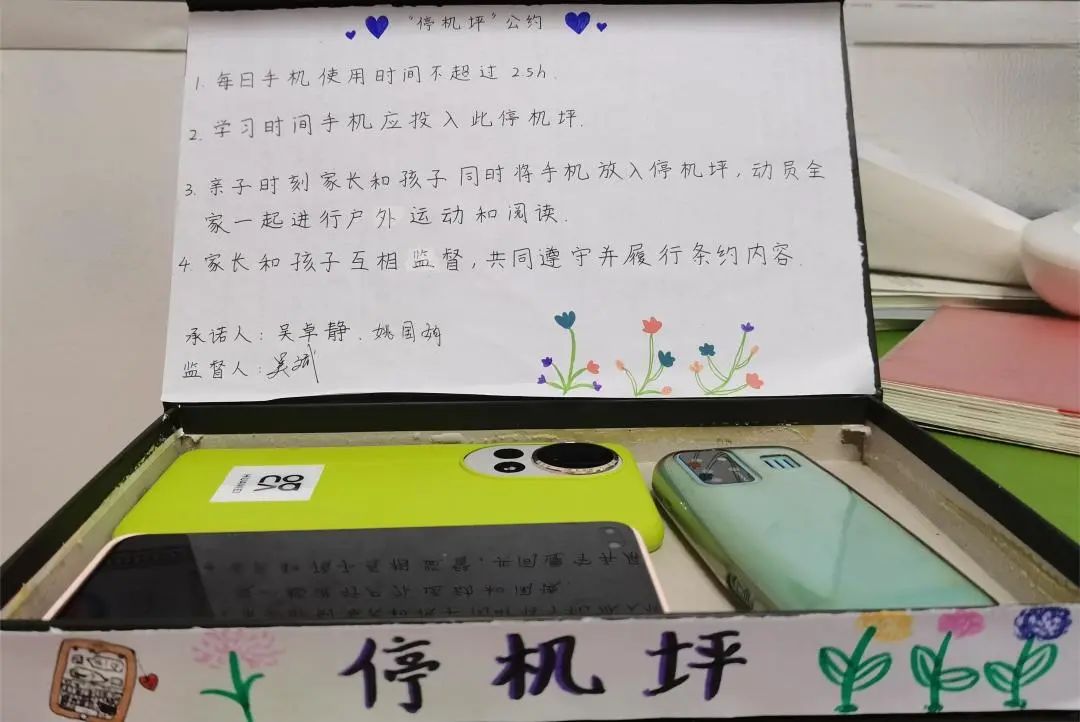 “停机坪”公约
1. 每日手机使用时间不超过 2.5h.
2. 学习时间手机应投入此停机坪.
3. 亲子时刻家长和孩子同时将手机放入停机坪，动员全
家一起进行户外运动和阅读.
4. 家长和孩子互相监督，共同遵守并履行条约内容.
承诺人：吴卓静、姚国
监督人：吴斌
HUAWEI
停机坪